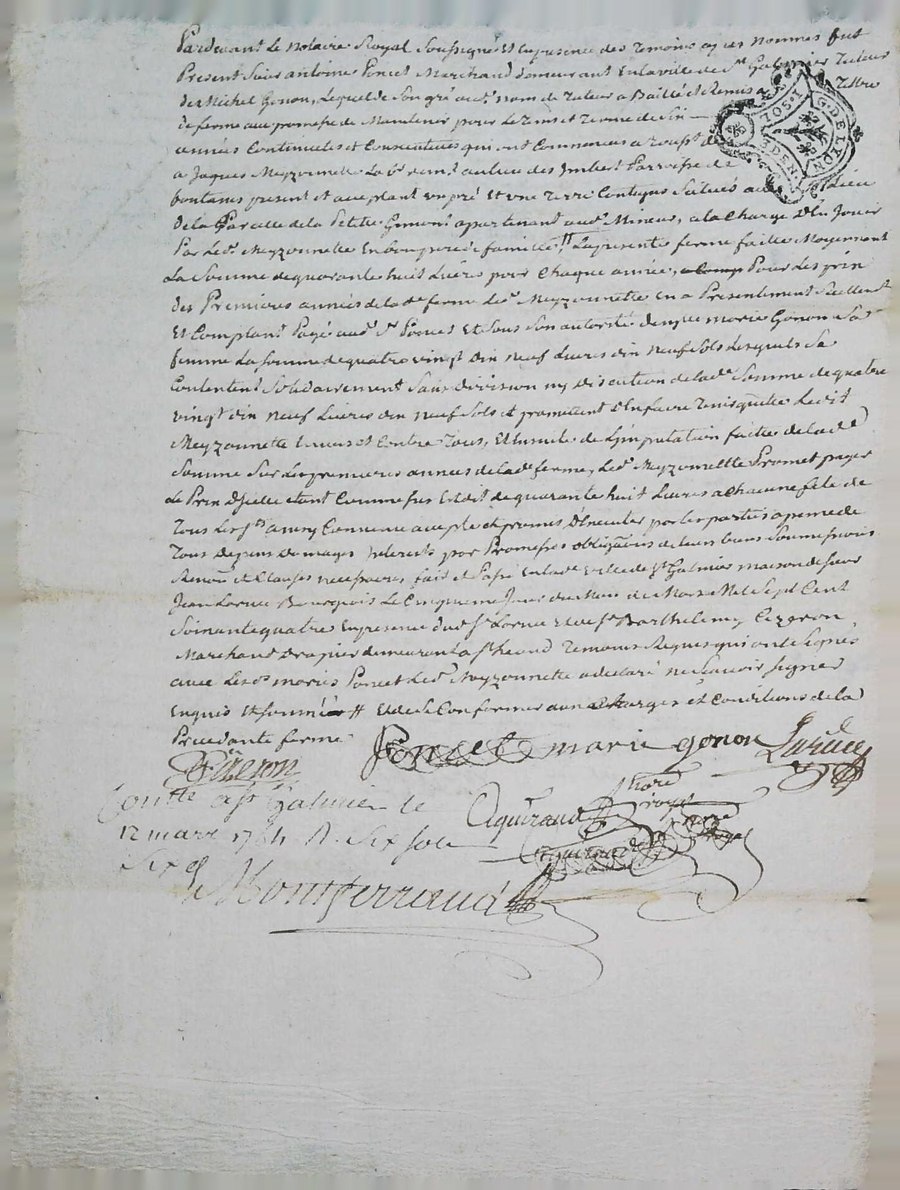 Pardevant Le notaire Royal Soussigné Et En presence des Temoins après Nommés fut
Present Sieur antoine Poncet Marchand demeurant En la ville de St Galmier Tuteur
de Michel Gonon, Lequel de Son gré aud. nom de Tuteur a Baillé et Remis a Tittre
de ferme avec promesse de Maintenir pour Le Tems et Terme de Six
années Continuelles et Consecutives qui ont Commencés a
a Jaques Meyzonnette au Lieu des Imbert Parroisse de
present et acceptant un pré Et une Terre Contigus Scitués au Lieu
de la de la Petite Gimond apartenant aud. Mineur, a la Charge d'En Jouir
Par Led. Meyzonnette En bon pere de famille # La presente ferme faitte Moyennant
La Somme de quarante huit Livres pour Chaque année, Pour Les prix
des Premieres années de la de ferme Led. Meyzonnette En a Presentement Réellement
Et Comptant Payé aud. Sr Poncet Et Sous Son autorité a marie Gonon Sa
femme La Somme de quatre vingt dix neuf Livres dix neuf Sols Lesquels Sa
Contentent Solidairement Sans division ny discution de la de Somme de quatre
vingt dix neuf Livres dix neuf Sols et promettent d'En faire Tenir quitte Ledit
Meyzonnette Envers et Contre Tous, Et Ensuite de L'imputation faitte de la de
Somme Sur Les premieres années de la de ferme, Led. Meyzonnette Promet payer
Le Prix d'Icelle etant Comme sus Est dit de quarante huit Livres a Chacune fête de
Tous Les Sts ainsy Convenu accepté et promis d'Executer par les parties a peine de
Tous depens domages Interets par Promesses obligations de Leurs biens Soumissions
Renon. et Clauses necessaires, fait et Passé En lade ville de St Galmier maison de Sieur
Jean Bourgeois Le Cinquieme Jour du Mois de Mars Mil Sept Cent
Soixante quatre En presence dud. Sr Et de Sr Barthelemy Cizeron
Marchand Drapier demeurant a St heand Temoins Requis qui ont Signés
avec Les ds mariés Poncet Led. Meyzonnette a declaré ne Scavoir Signer
Enquis Et Sommé # Et de Se Conformer aux Charges et Conditions de la
Precedante ferme
Cizeron Poncet marie gonon
Aiguiraud Nore royal
Conllé a St Galmier le
12 mars 1764 R. Six sols
Six d.
Montferrand
G. DE LYON
1. SOL.